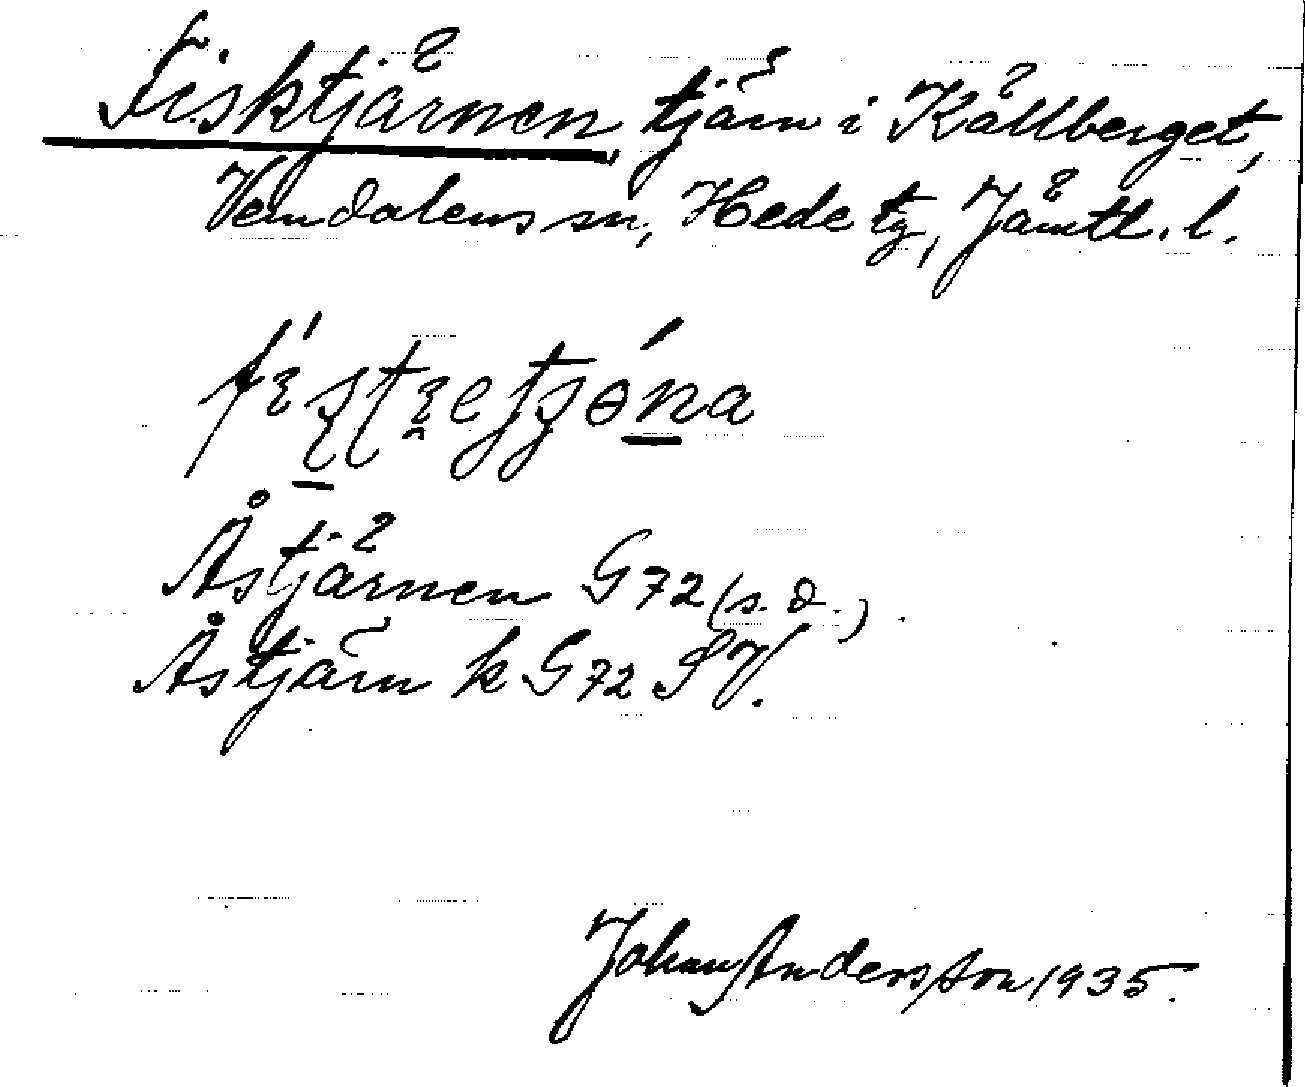 Fisktjärnen, tjärn i Källberget,
Vemdalens sn, Hede tg, Jämtl. l.
Åstjärnen G72 (s. d.)
Åstjärn k G72 SV.
Johan Andersson 1935.